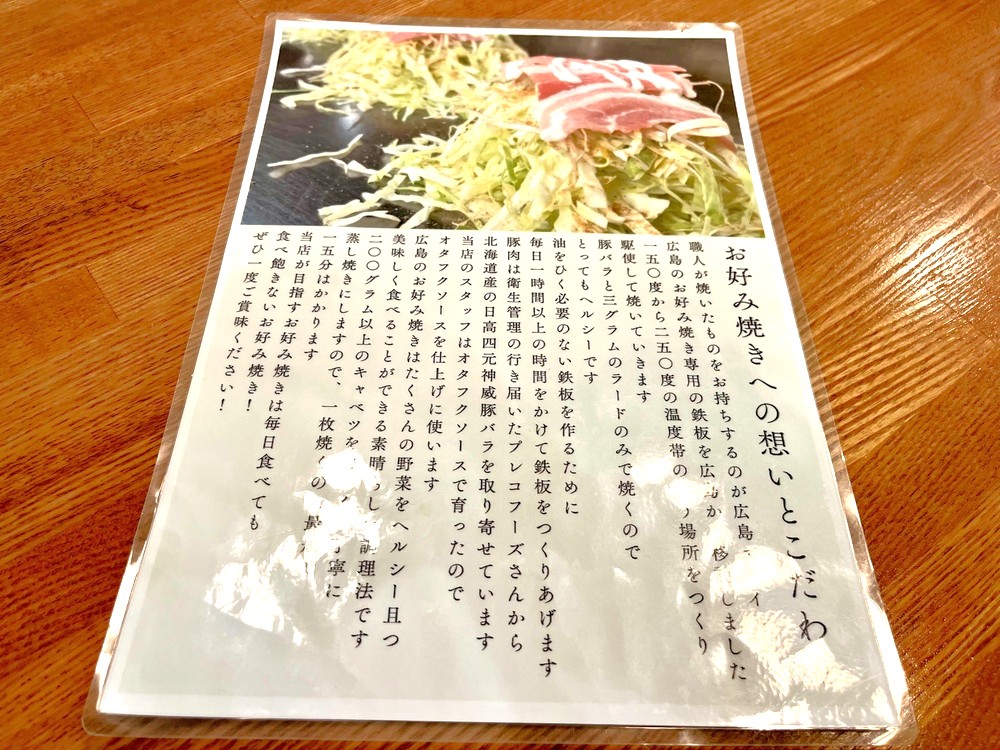 お好み焼きへの想いとこだわ
職人が焼いたものをお持ちするのが広島
広島のお好み焼き専用の鉄板を広島か 移 しました
一五〇度から二五〇度の温度帯の 場所をつくり
駆使して焼いていきます
豚バラと三グラムのラードのみで焼くので
とってもヘルシーです
油をひく必要のない鉄板を作るために
毎日一時間以上の時間をかけて鉄板をつくりあげます
豚肉は衛生管理の行き届いたプレコフーズさんから
北海道産の日高四元神威豚バラを取り寄せています
当店のスタッフはオタフクソースで育ったので
オタフクソースを仕上げに使います
広島のお好み焼きはたくさんの野菜をヘルシー且つ
美味しく食べることができる素晴 し 調理法です
二〇〇グラム以上のキャベツを 寧に
蒸し焼きにしますので、一枚焼 の 最
一五分はかかります
当店が目指すお好み焼きは毎日食べても
食べ飽きないお好み焼き！
ぜひ一度ご賞味ください！